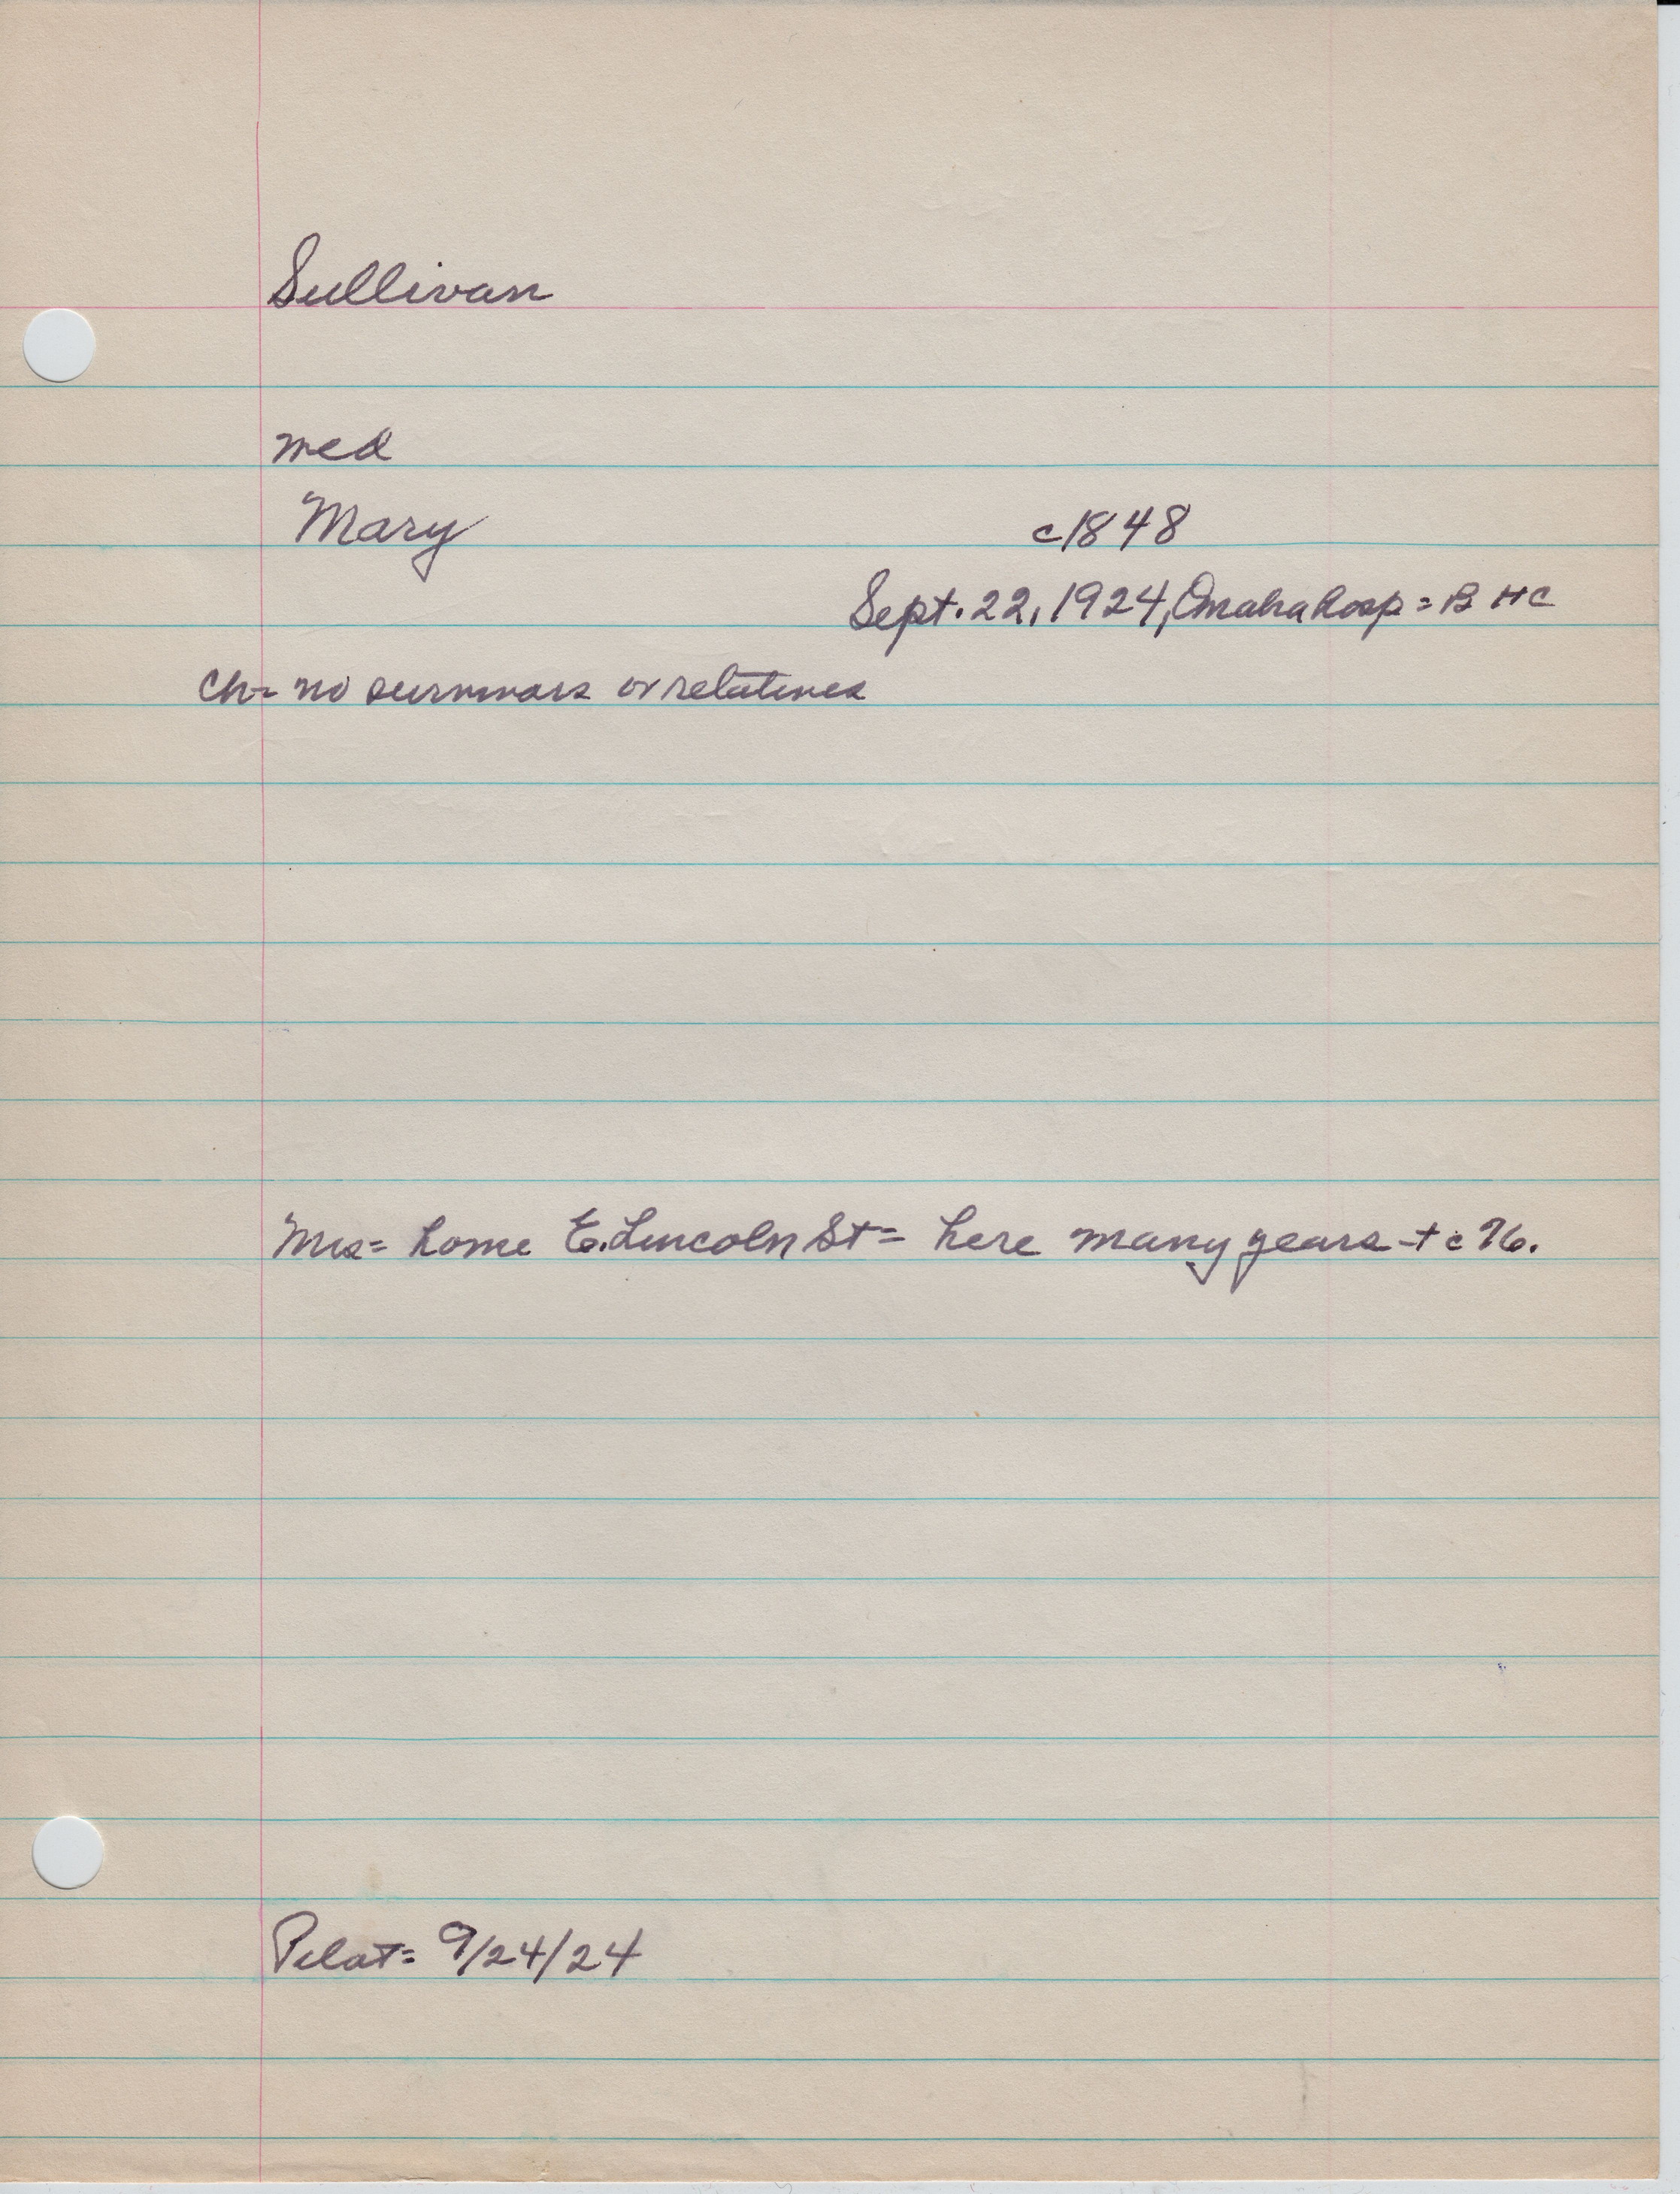 Sullivan
med
Mary c1848
Sept. 22, 1924, Omaha hosp = B HC
Ch- no survivors or relatives
Mrs = home E. Lincoln St = here many years - + c 76.
Pilot = 9/24/24